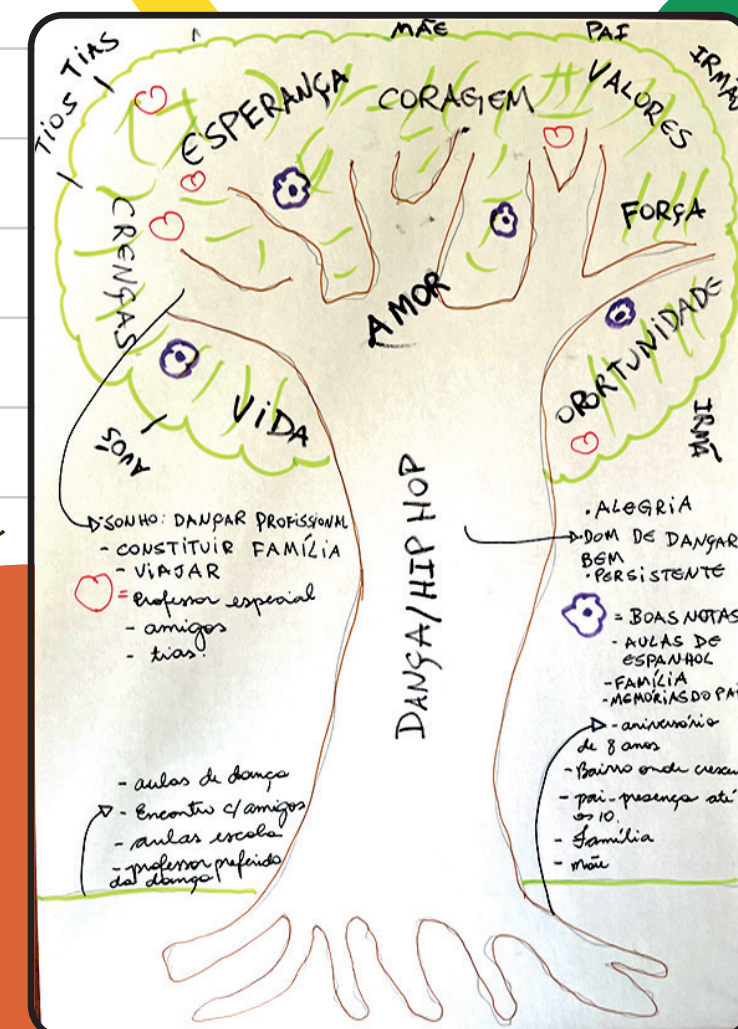 MÃE
PAI
TIAS
TIOS
IRMÃO
ESPERANÇA
CORAGEM
VALORES
CRENÇAS
FORÇA
AMOR
OPORTUNIDADE
VIDA
AVÓS
IRMÃ
DANÇA/HIP HOP
SONHO: DANÇAR PROFISSIONAL
- CONSTITUIR FAMÍLIA
- VIAJAR
= Professor especial
- amigos
- tias.
- aulas de dança
- Encontro c/amigos
- aulas escola
- professor preferido
da dança
. ALEGRIA
DOM DE DANÇAR
BEM
. PERSISTENTE
= BOAS NOTAS
- AULAS DE
ESPANHOL
- FAMÍLIA
- MEMÓRIAS DO PAI
- aniversário
de 8 anos
- Bairro onde cresceu
- pai-presença até
os 10.
- Família
- mãe